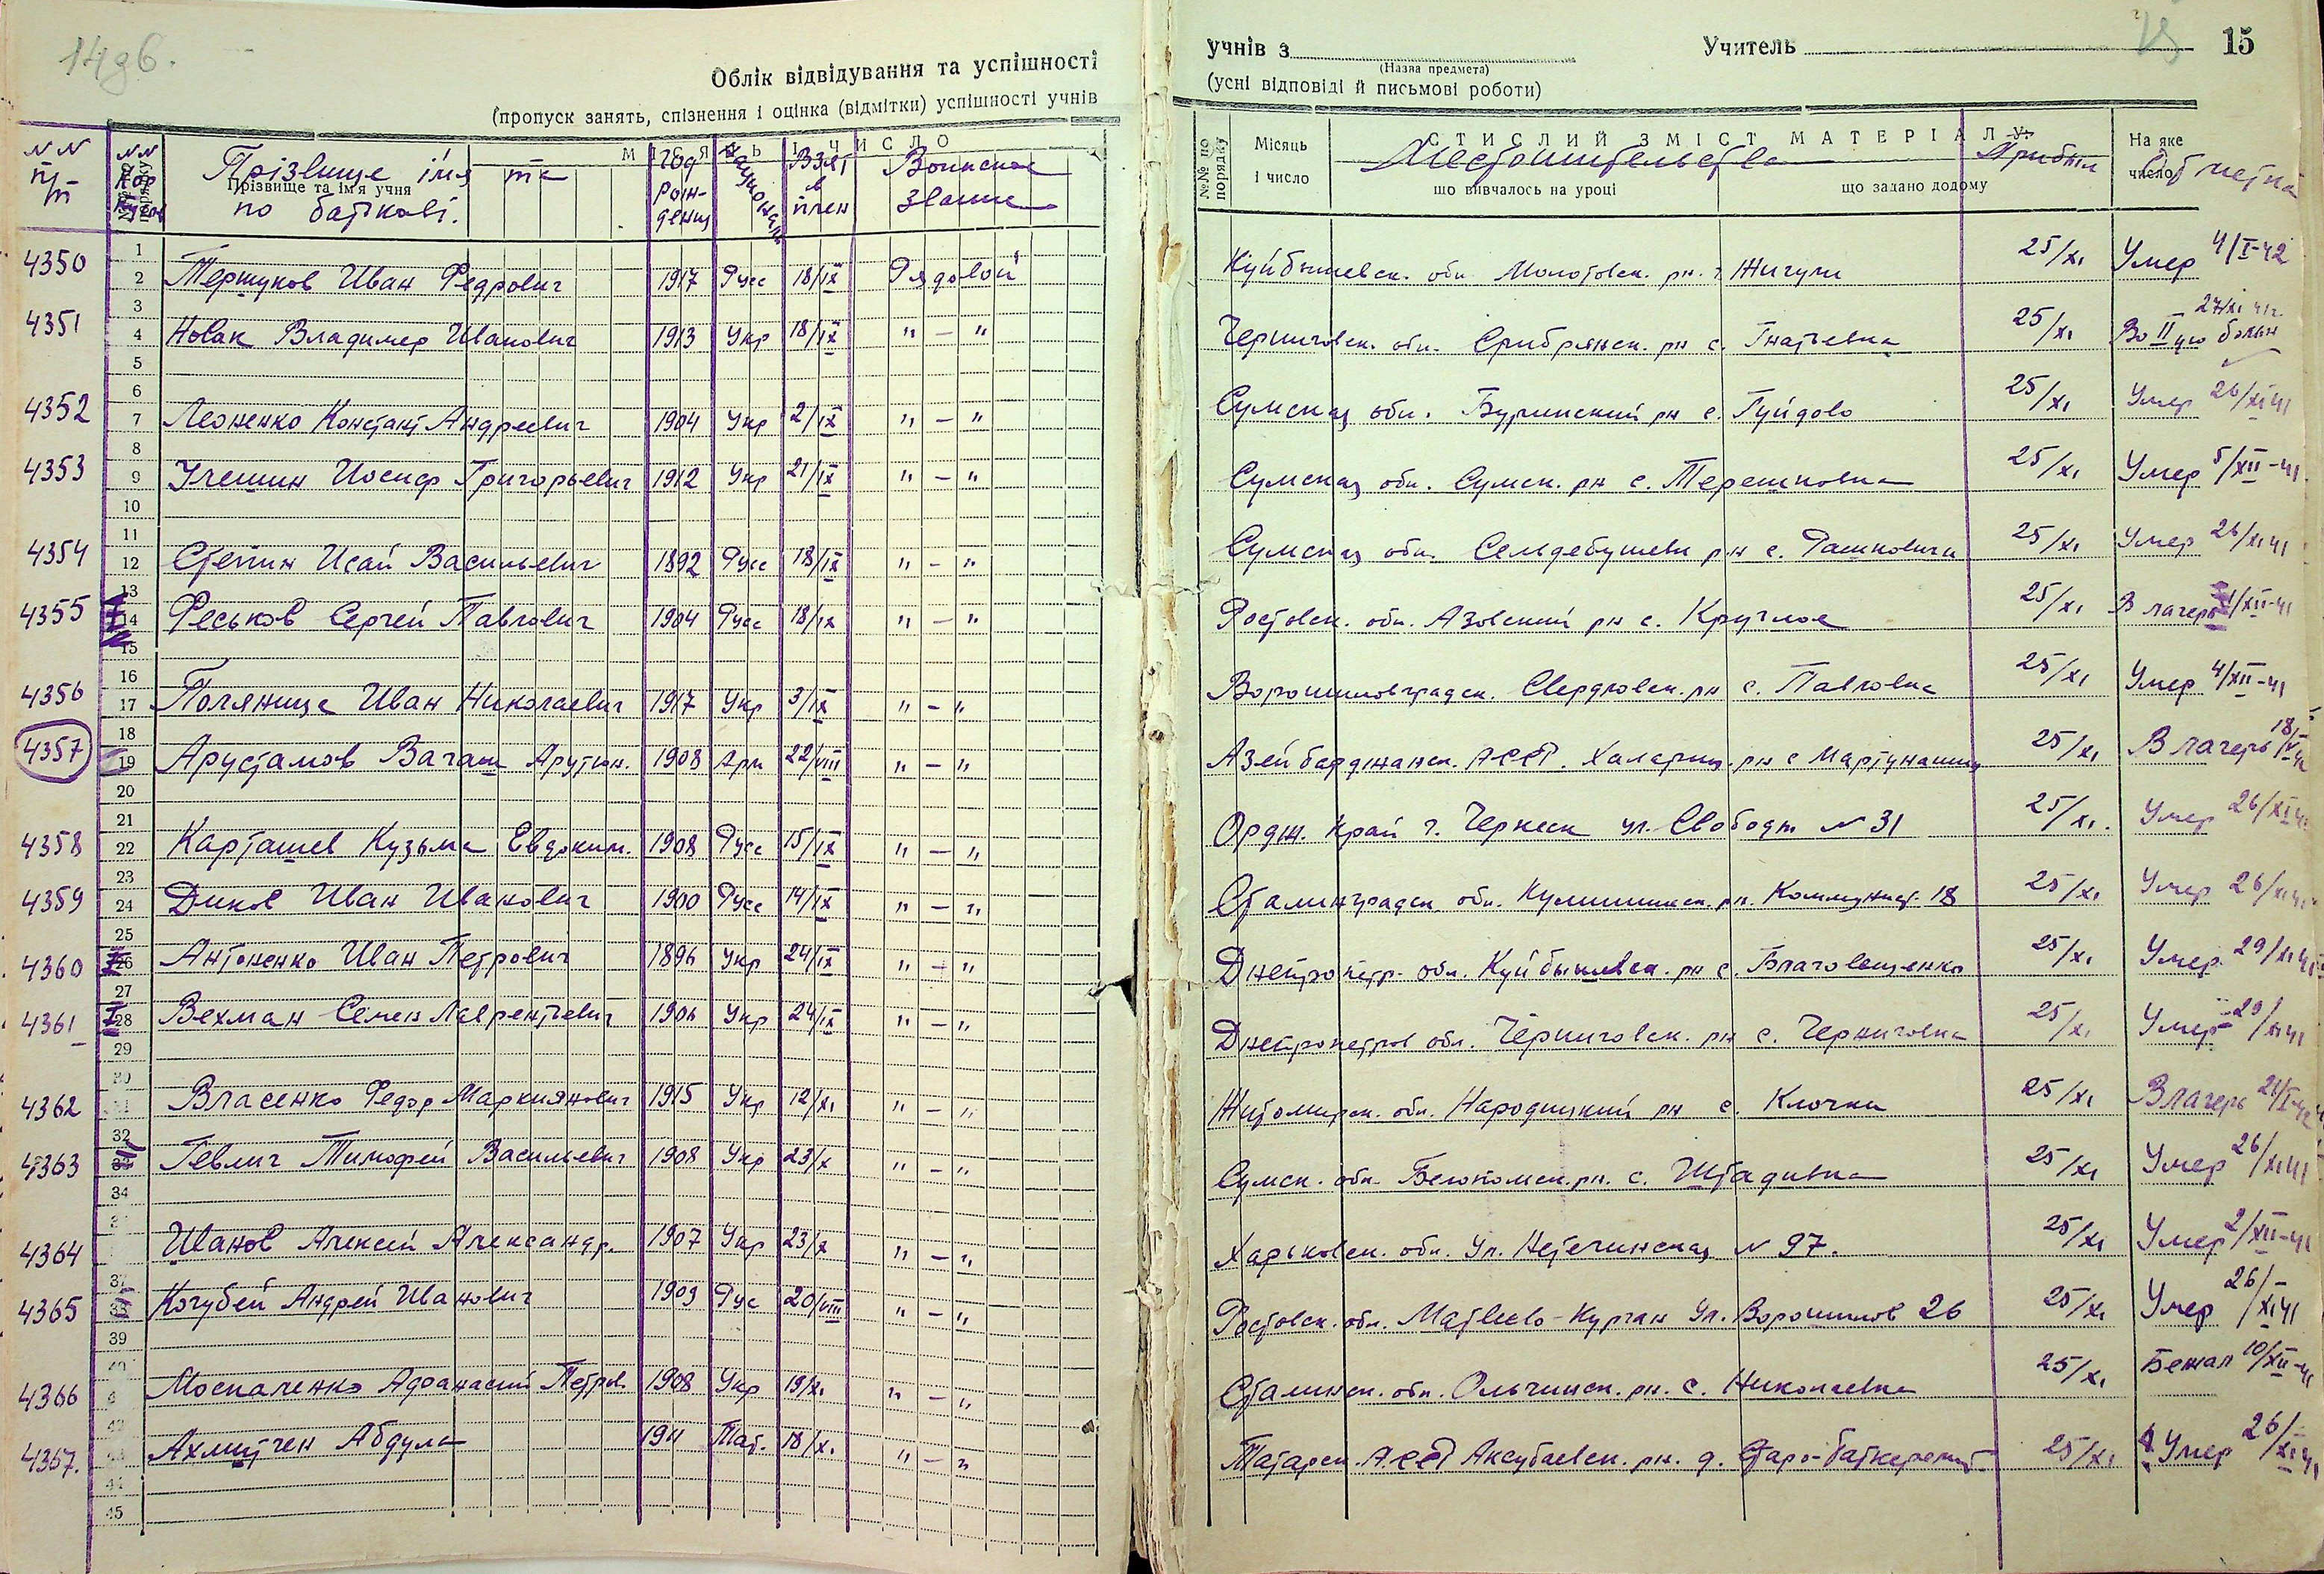 14 об.
Облік відвідування та успішності
(пропуск занять, спізнення і оцінка (відмітки) успішності учнів
учнів з Учитель 15
(Назва предмета)
(усні відповіді й письмові роботи)
Прізвище ім'я та по батькові.
Прізвище та ім'я учня
Год рождения
Взят в плен
Воинское звание
№№ по порядку
Місяць і число
СТИСЛИЙ ЗМІСТ МАТЕРІАЛУ
Местожительства
що вивчалось на уроці
що задано додому
Прибыт
На яке число
Отметка
4350 Першуков Иван Федрович 1917 Русс 18/IX Рядовой Куйбышевск. обл. Молотовск. рн. г. Жигули 25/XI Умер 4/I-42
4351 Новак Владимер Иванович 1913 Укр 18/IX " — " Черниговск. обл. Срибрянск. рн с. Гнатевка 25/XI Во II ую больн 27/XI 41г.
4352 Леоненко Констант Андреевич 1904 Укр 2/IX " — " Сумская обл. Буринский рн с. Гуйдово 25/XI Умер 26/XI 41
4353 Улешин Иосиф Григорьевич 1912 Укр 21/IX " — " Сумская обл. Сумск. рн с. Терешковка 25/XI Умер 5/XII-41
4354 Степин Исай Васильевич 1892 Русс 18/IX " — " Сумская обл. рн с. Рашковичи 25/XI Умер 26/XI 41
4355 Феськов Сергей Павлович 1904 Русс 18/IX " — " Ростовск. обл. Азовский рн с. Круглое 25/XI В лагерь 1/XII-41
4356 Поляница Иван Николаевич 1917 Укр 3/IX " — " Ворошиловградск. Свердловск. рн с. Павловка 25/XI Умер 4/XII-41
4357 Арустамов Вагаш Арутюн. 1908 Арм 22/VIII " — " Азейбарджанск. АССР. рн с Мартунашиц 25/XI В лагерь
4358 Карташев Кузьма Евдоким. 1908 Русс 15/IX " — " Ордж. край г. Черкеск ул. Свободы № 31 25/XI. Умер 26/XI 41
4359 Диков Иван Иванович 1900 Русс 14/IX " — " Сталинградск. обл. рн. Коммунист. 18 25/XI Умер 26/XI 41
4360 Антоненко Иван Петрович 1896 Укр 24/IX " — " Днепропетр. обл. Куйбышевск. рн с. Благовещенко 25/XI Умер 29/XI 41
4361 Вехман Семен Лаврентьевич 1906 Укр 24/IX " — " Днепропетров обл. Черниговск. рн с. Черниговка 25/XI Умер 29/XI 41
4362 Власенко Федор Маркиянович 1915 Укр 12/XI " — " Житомирск. обл. Народицкий рн с. Клочки 25/XI В лагерь
4363 Гевлич Тимофей Васильевич 1908 Укр 23/X " — " Сумск. обл. рн. с. Штадивка 25/XI Умер 26/XI 41
4364 Шанов Алексей Александр. 1907 Укр 23/X " — " Харьковск. обл. Ул. Нетечинская № 97. 25/XI Умер 2/XII-41
4365 Кочубей Андрей Иванович 1909 Рус 20/VIII " — " Ростовск. обл. Матвеево-Курган Ул. Ворошилов 26 25/XI Умер 26/XI 41
4366 Москаленко Афанасий Петров 1908 Укр 19/XI " — " Сталинск. обл. Ольгинск. рн. с. Николаевка 25/XI Бежал 10/XII-41
4367. Ахмитчен Абдула 1911 Тат. 18/X. " — " Татарск. АССР Аксубаевск. рн. д. 25/XI Умер 26/XI 41